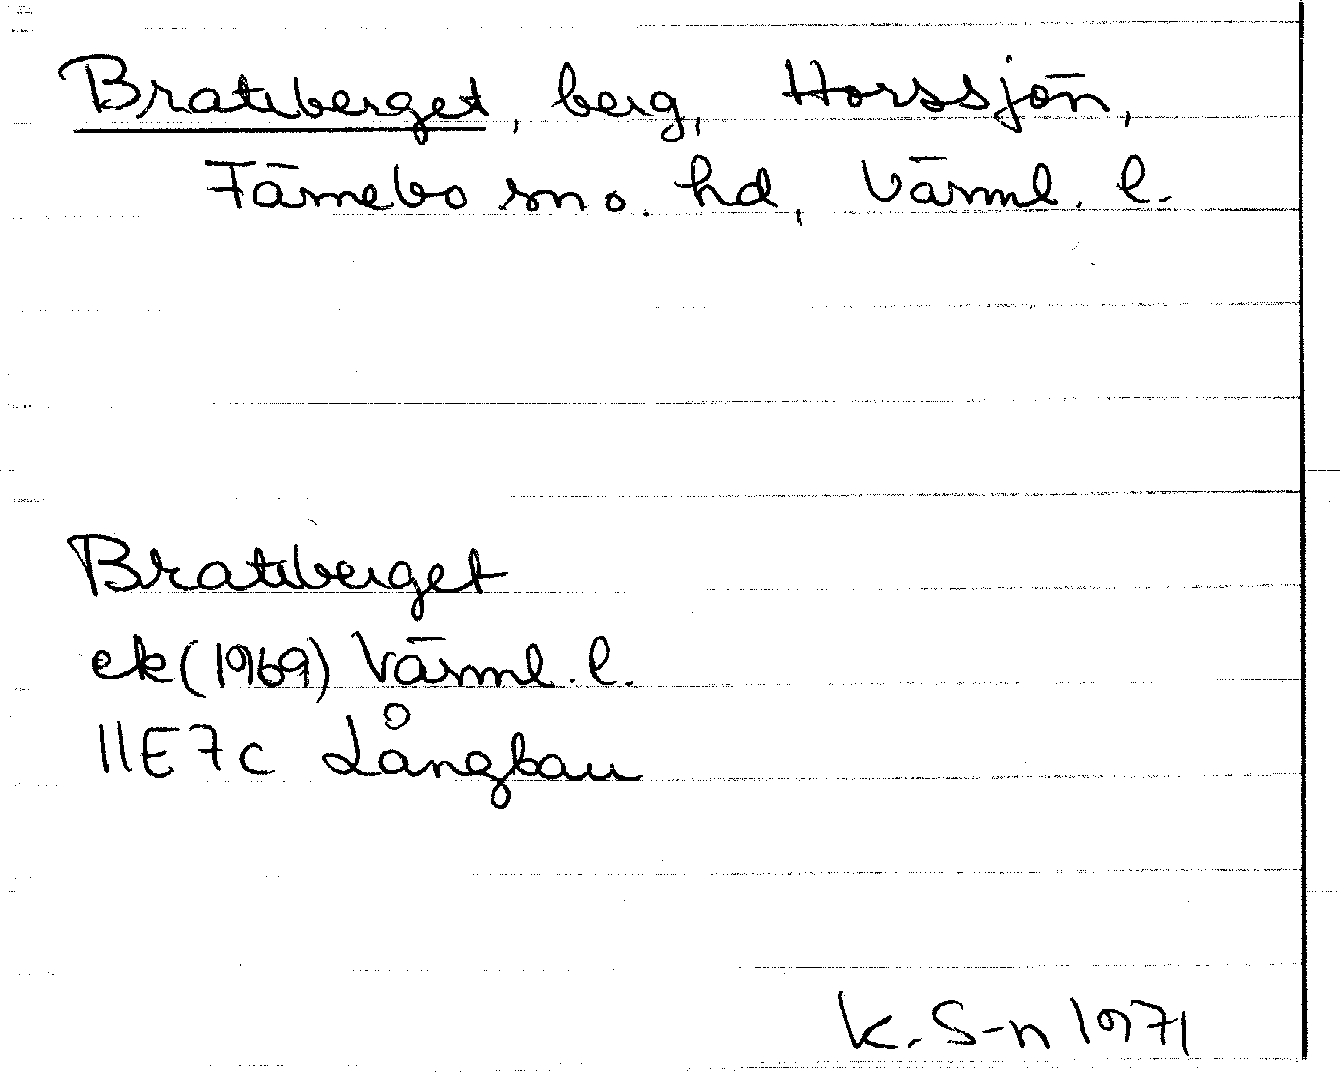 Brattberget, berg, Horssjön,
Färnebo sn o. hd, Värml. l.
Brattberget
ek (1969) Värml. l.
11E7c Långban
K. S-n 1971